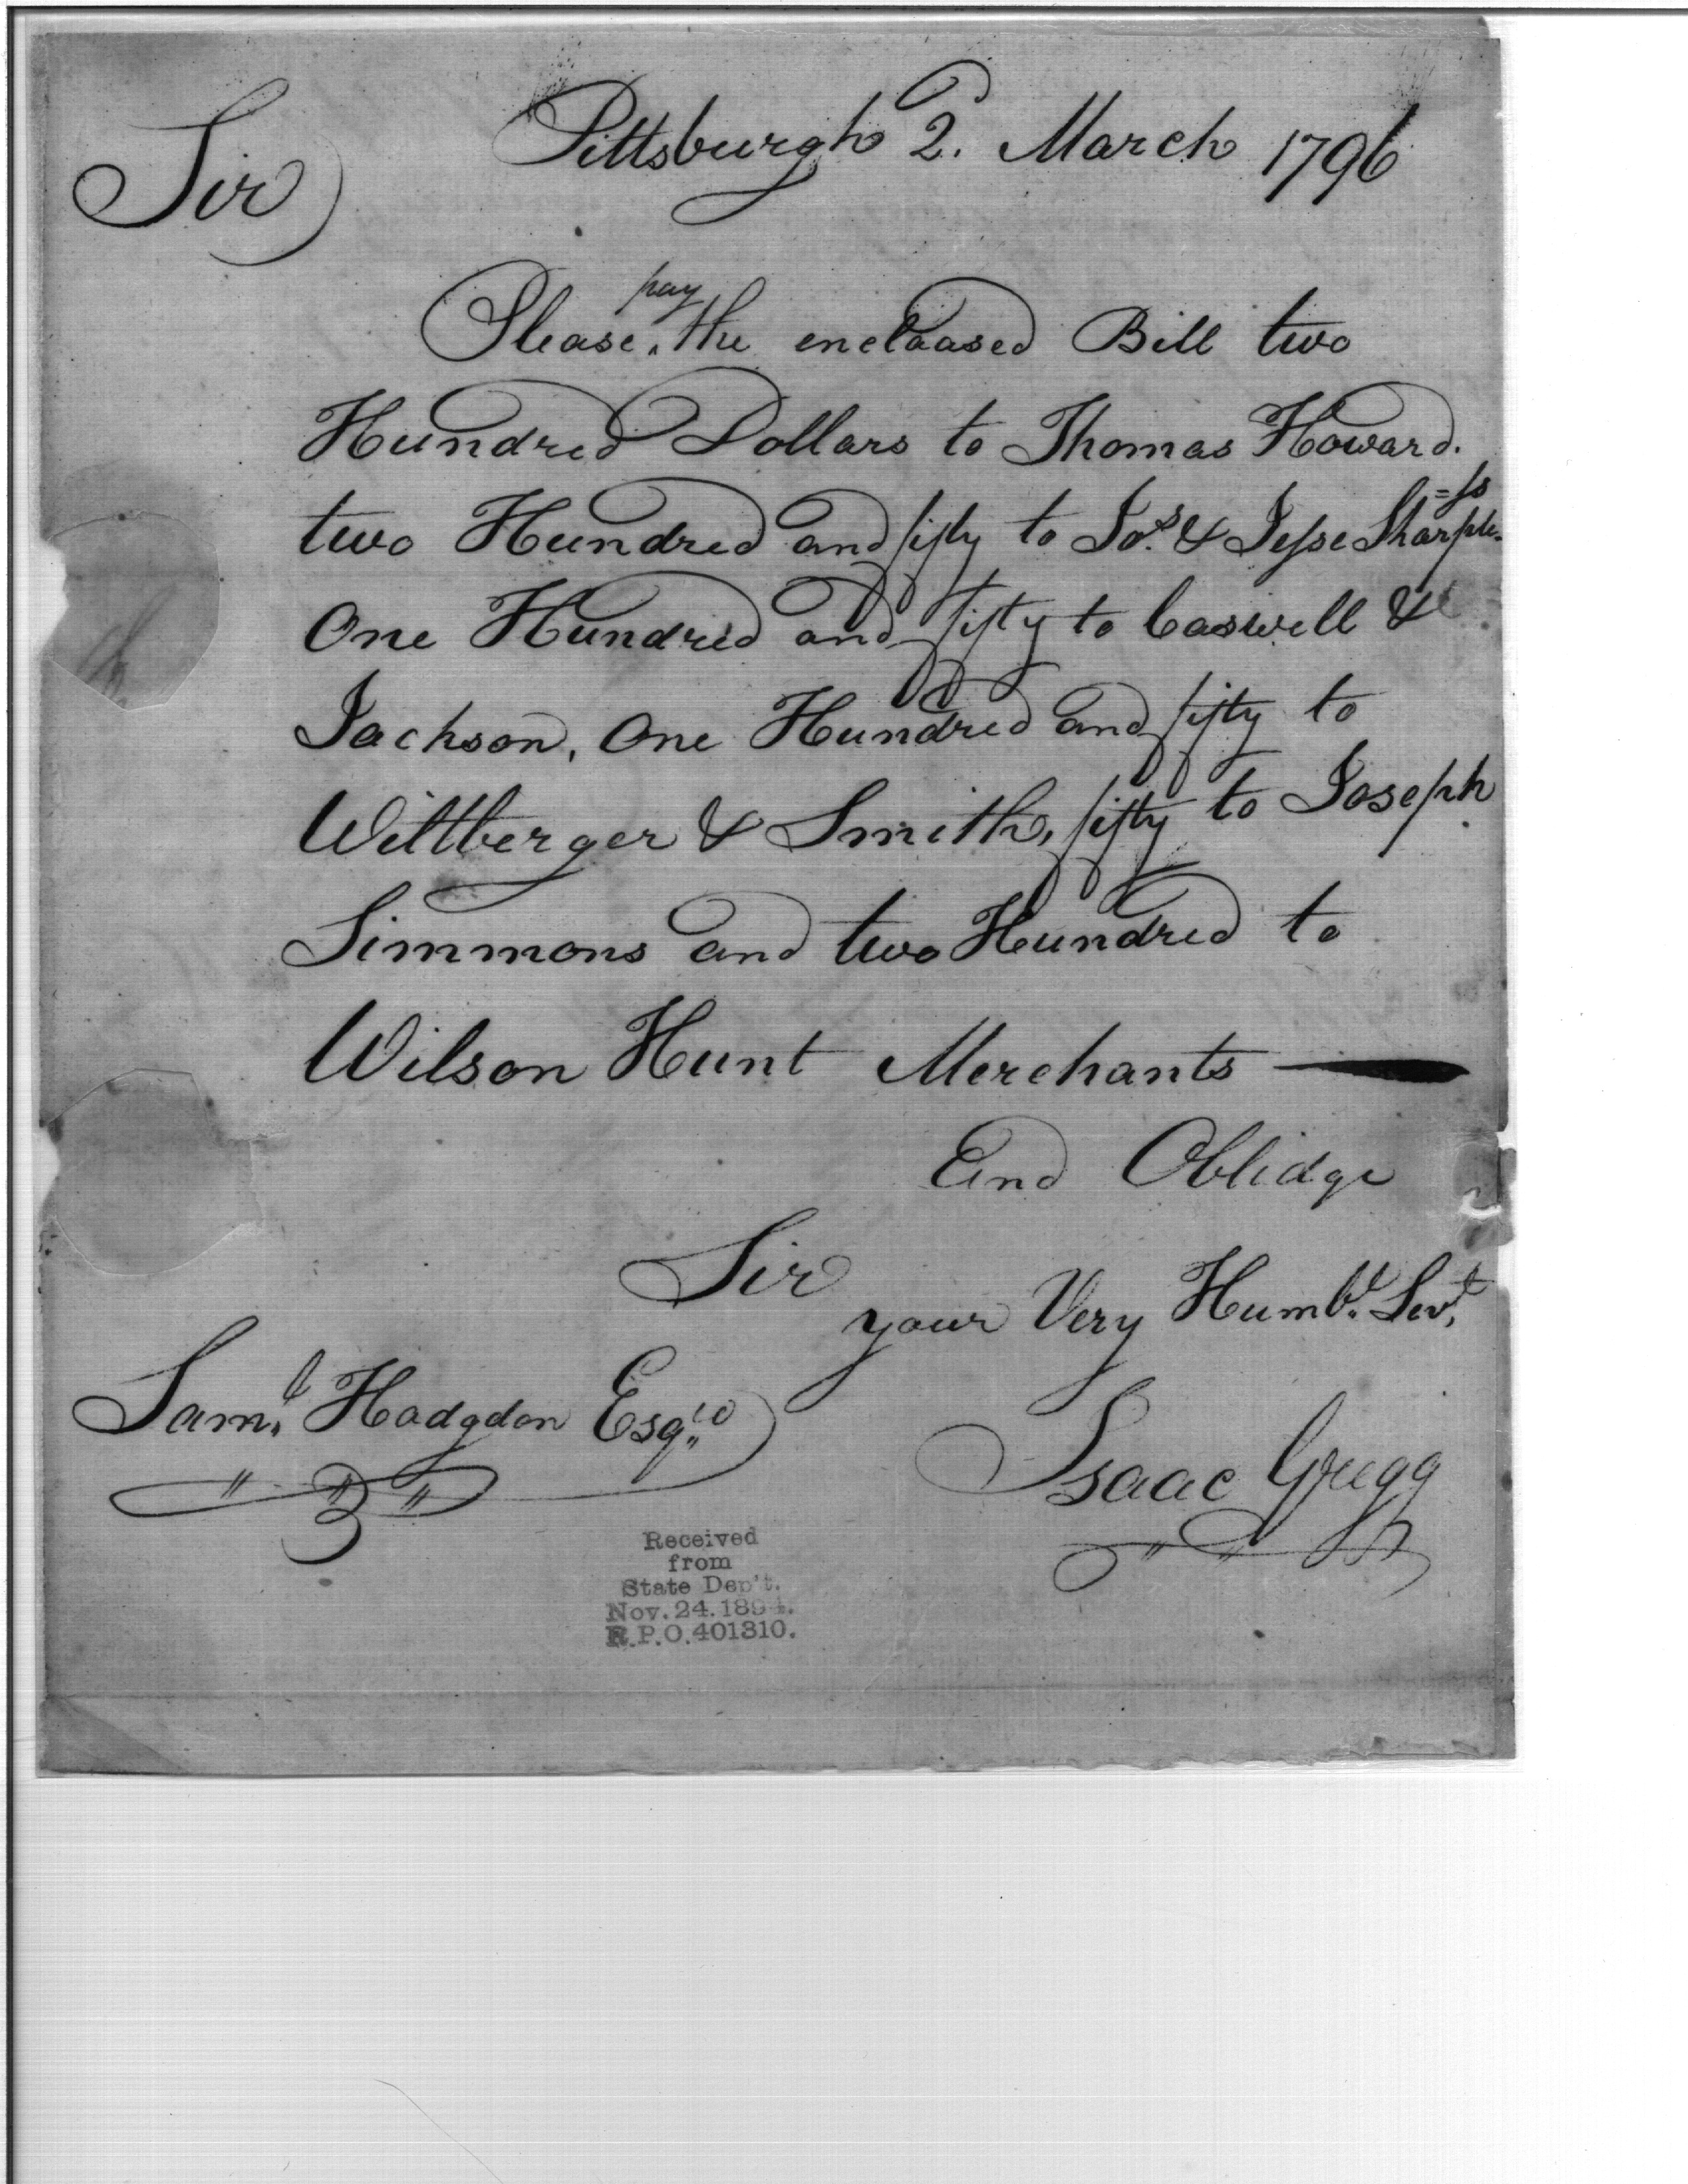 Pittsburgh 2. March 1796
Sir
Please pay the enclaased Bill two
Hundred Dollars to Thomas Howard.
two Hundred and fifty to Jos. & Jesse Sharple=ss
One Hundred and fifty to Caswell &
Jackson, One Hundred and fifty to
Wiltberger & Smith, fifty to Joseph
Simmons and two Hundred to
Wilson Hunt Merchants
And Oblidge
Sir
your Very Humbl. Servt,
Saml. Hodgdon Esqre
Isaac Gregg
Received
from
State Dep't.
Nov. 24. 1894.
R.P.O. 401310.